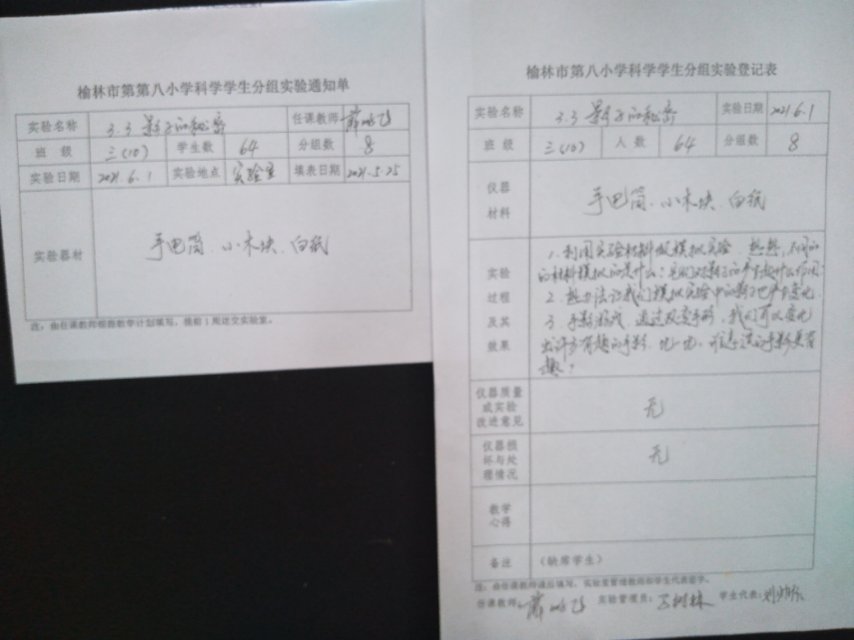 榆林市第第八小学科学学生分组实验通知单
实验名称 3.3 影子的秘密 任课教师
班 级 三(10) 学生数 64 分组数 8
实验日期 2021.6.1 实验地点 实验室 填表日期 2021.5.25
实验器材 手电筒、小木块、白纸
注：由任课教师根据教学计划填写，提前1周送交实验室。
榆林市第第八小学科学学生分组实验登记表
实验名称 3.3 影子的秘密 实验日期 2021.6.1
班 级 三(10) 人 数 64 分组数 8
仪器
材料
手电筒、小木块、白纸
实验
过程
及其
效果
1.利用实验材料做模拟实验 想想，不同的
的材料模拟的是什么？它们对影子的产生起什么作用
2.想办法让我们模拟实验中的影子也产生变化
3.手影游戏，通过改变手形，我们可以变化
出许多有趣的手影，比一比，谁表演的手影更有
趣？
仪器质量
或实验
改进意见
无
仪器损
坏与处
理情况
无
教学
心得
备注 (缺席学生)
注：由任课教师课后填写，实验室管理教师和学生代表签字。
任课教师： 实验管理员： 学生代表：